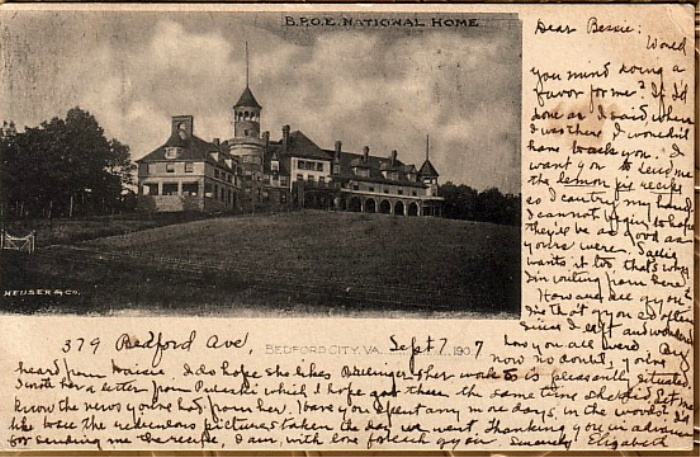 B.P.O.E. NATIONAL HOME
Dear Bessie:
Would
you mind doing a
favor for me? If I'd
done as I said, when
I was there, I wouldn't
have to ask you. I
want you to send me
the lemon pie recipe
so I can try my hand
I cannot begin to hope
they'll be as good as
yours were. Sadie
wants it too that's why
I'm writing from here.
How are all of you?
I've thot of you so often
since I left and wondered
how you all were. By
now no doubt, you've
HEUSER & CO.
379 Bedford Ave,
BEDFORD CITY, VA. Sept 7 1907
heard from Maisie. I do hope she likes her work & is pleasantly situated
I wrote her a letter from Pulaski which I hope got there the same time she did. Let me
know the news you've had from her. Have you spent any more days, in the woods? I'd
like to see the rediculous pictures taken the day we went. Thanking you in advance
for sending me the recipe, I am, with love for each of you. Sincerely Elizabeth